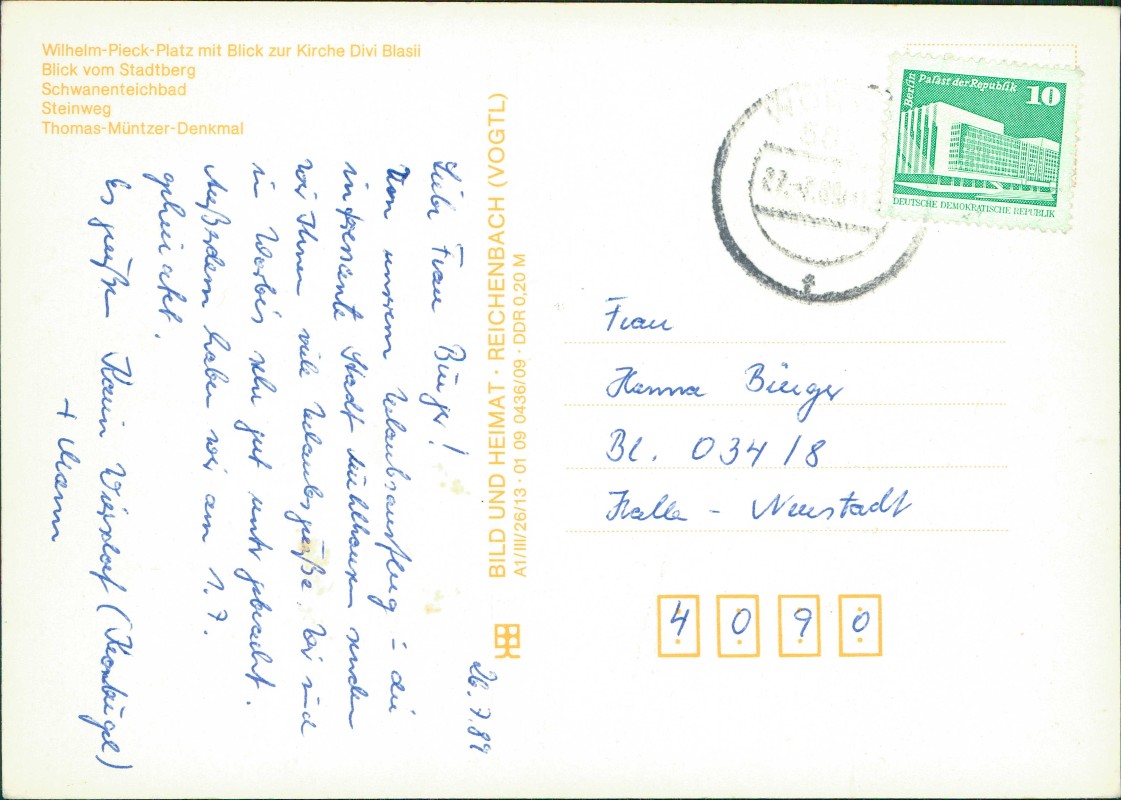 Wilhelm-Pieck-Platz mit Blick zur Kirche Divi Blasii
Blick vom Stadtberg
Schwanenteichbad
Steinweg
Thomas-Müntzer-Denkmal
26.7.89
Liebe Frau Bürger!
Von unserem Urlaubsausflug in die
interessante Stadt Mühlhausen senden
wir Ihnen viele Urlaubsgrüße. Wir sind
in Worbis sehr gut untergebracht.
Außerdem haben wir am 1.7.
geheiratet.
Es grüßen Karin Wiesdorf (Kronbügel)
+ Mann
BILD UND HEIMAT · REICHENBACH (VOGTL)
A1/III/26/13 · 01 09 0436/09 · DDR 0,20 M
Berlin Palast der Republik 10
DEUTSCHE DEMOKRATISCHE REPUBLIK
Frau
Hanna Bürger
Bl. 034/8
Halle - Neustadt
4090